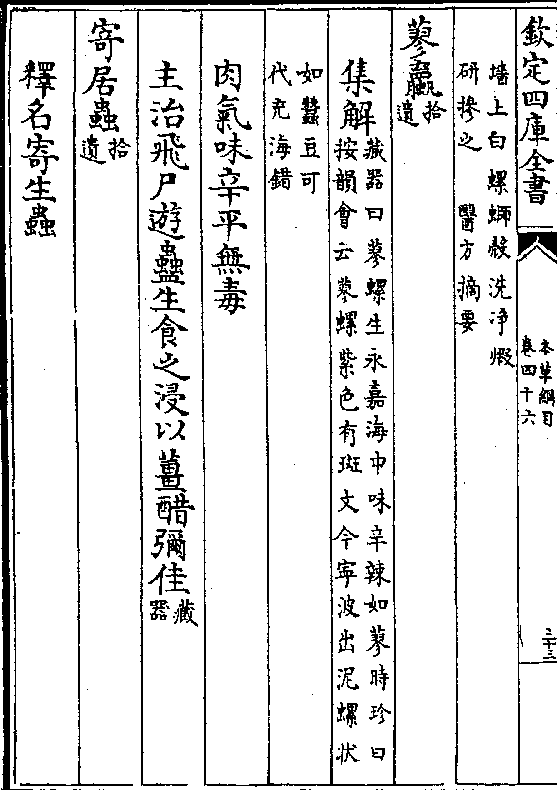 欽定四庫全書
本草綱目
卷四十六
三十三
墻上白螺螄殻洗淨煆
研摻之　醫方摘要
蓼蠃拾遺
集解藏器曰蓼螺生永嘉海中味辛辣如蓼時珍曰
按韻會云蓼螺紫色有斑文今寧波出泥螺狀
如蠶豆可
代充海錯
肉氣味辛平無毒
主治飛尸遊蠱生食之浸以薑醋彌佳藏器
寄居蟲拾遺
釋名寄生蟲